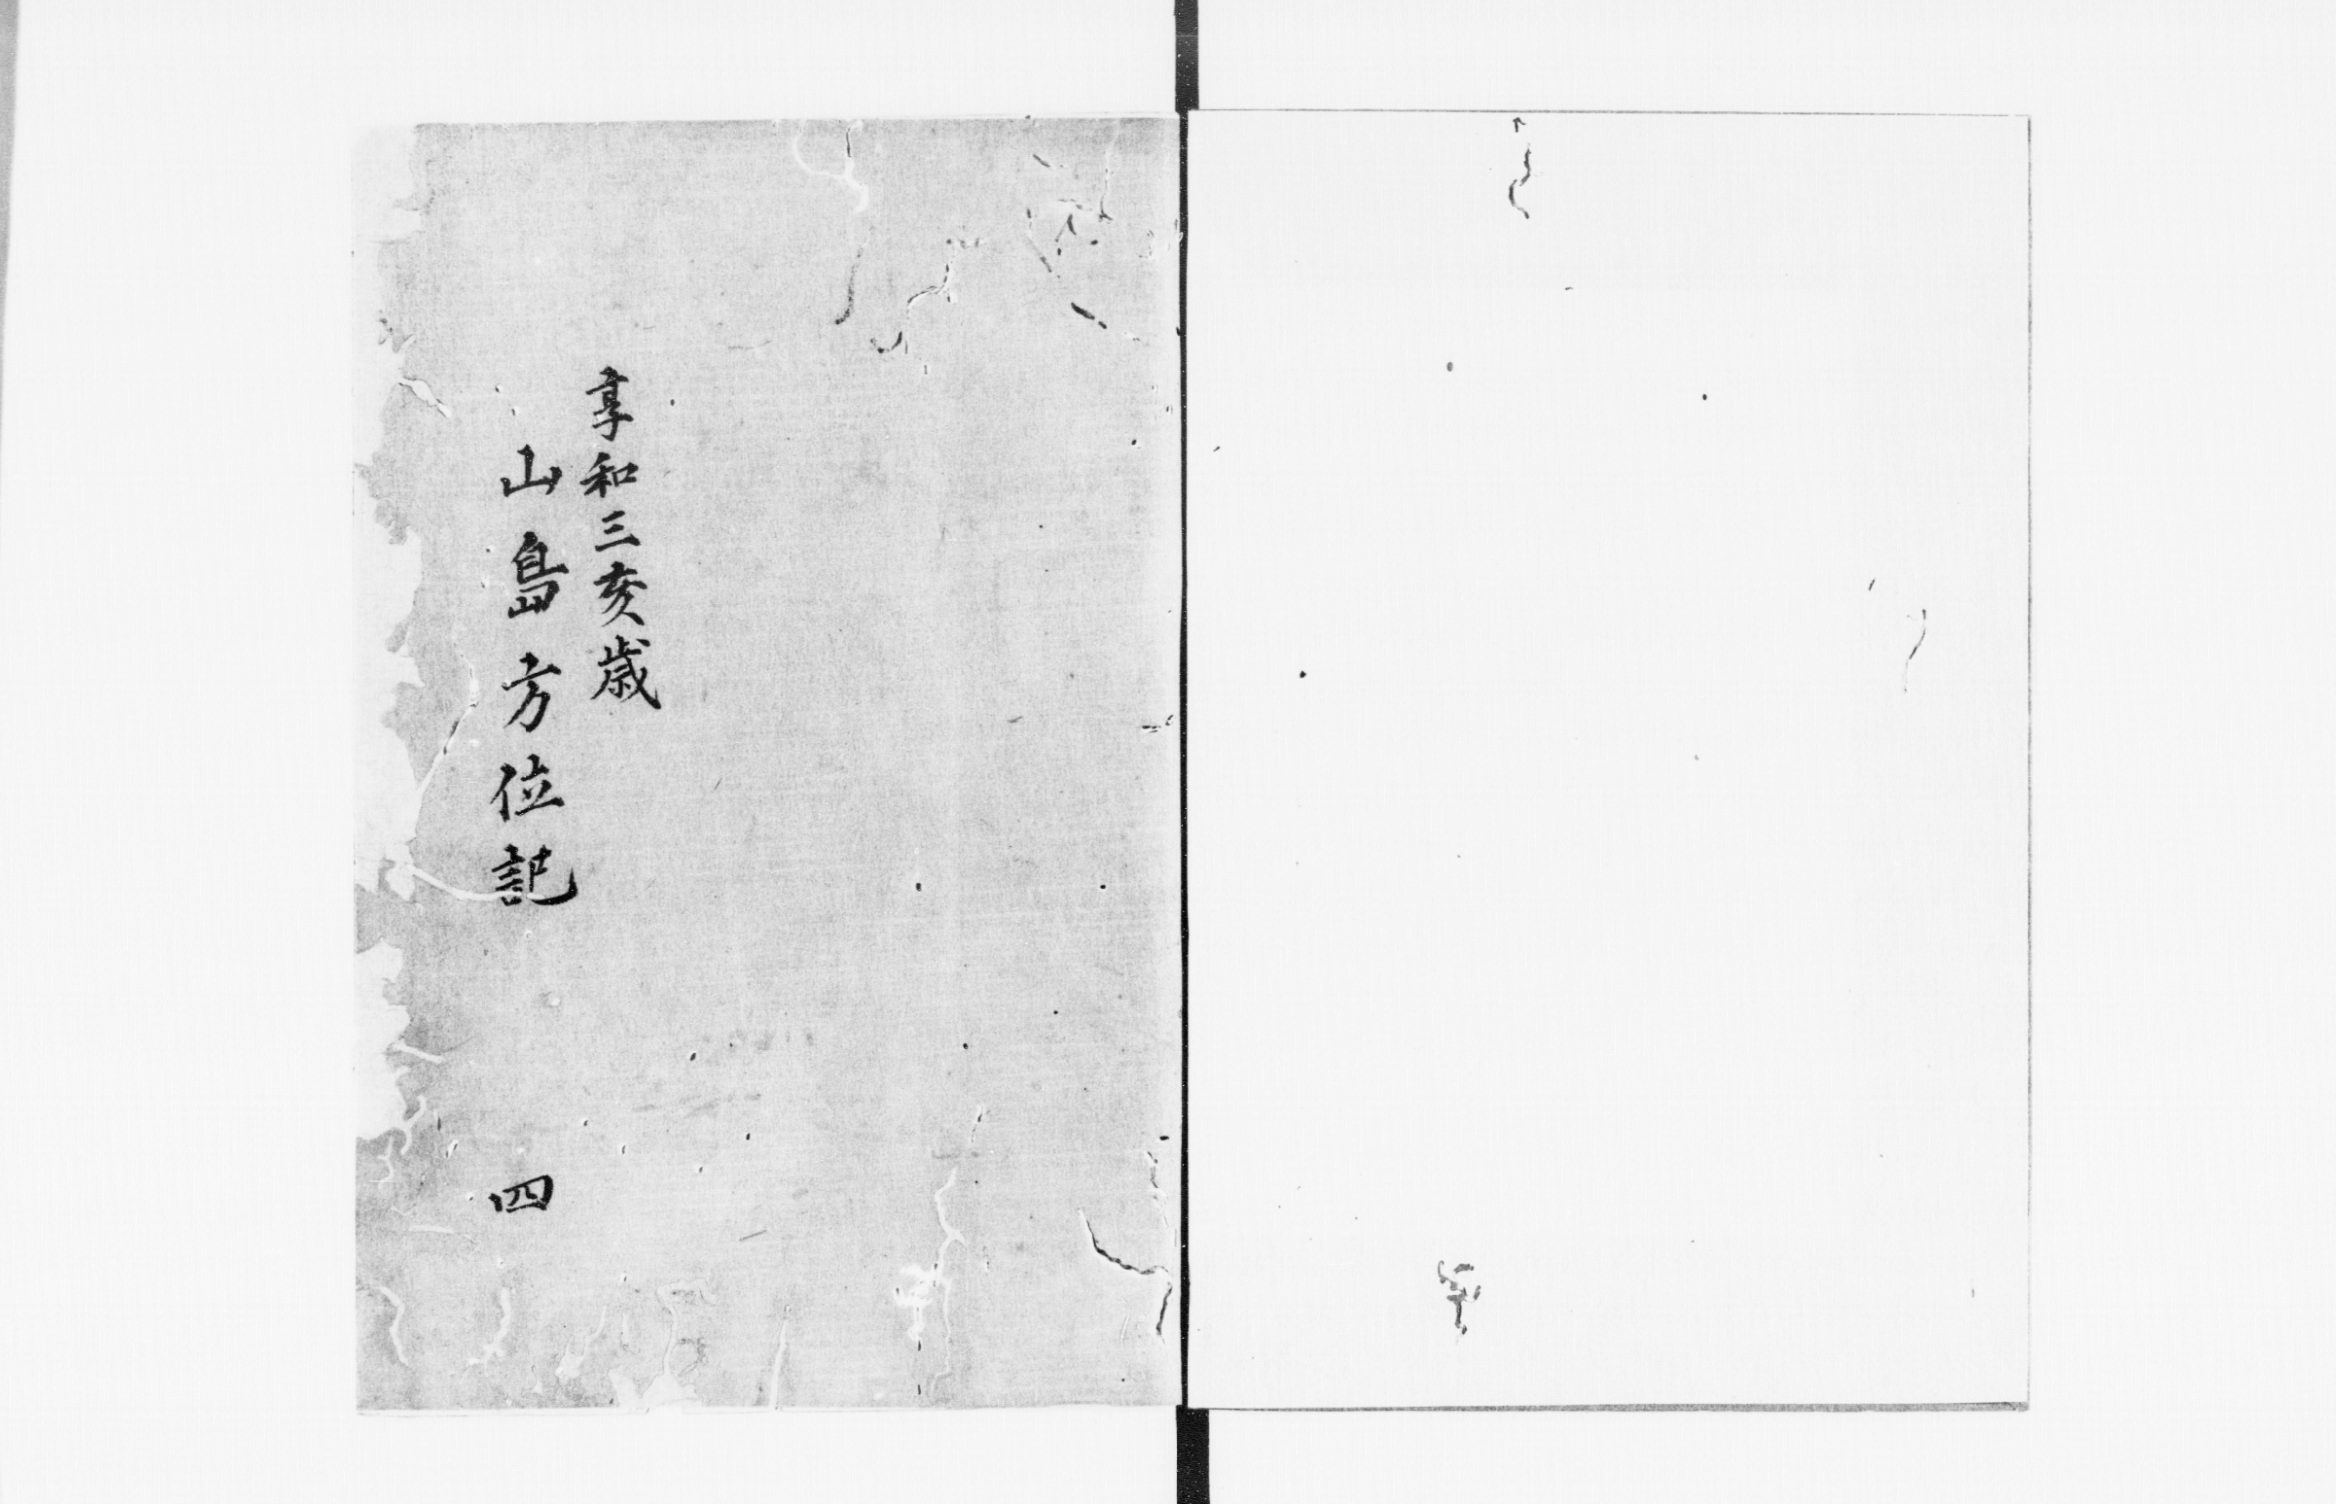 享和三亥歳
山島方位記 四